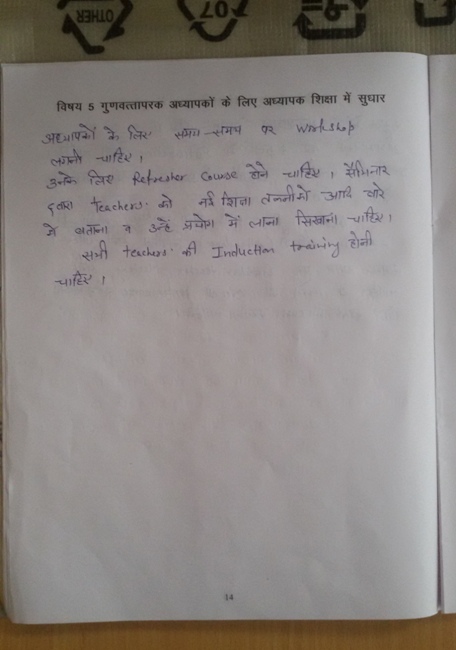 OTHER
07
विषय 5 गुणवत्तापरक अध्यापकों के लिए अध्यापक शिक्षा में सुधार
अध्यापकों के लिए समय-समय पर Workshop
लगनी चाहिए।
उनके लिए Refresher Course होने चाहिए। सैमिनार
द्वारा teachers को नई शिक्षा तकनीको आदि बारे
मे बताना व उन्हें प्रयोग में लाना सिखाना चाहिए।
सभी teachers की Induction training होनी
चाहिए।
14